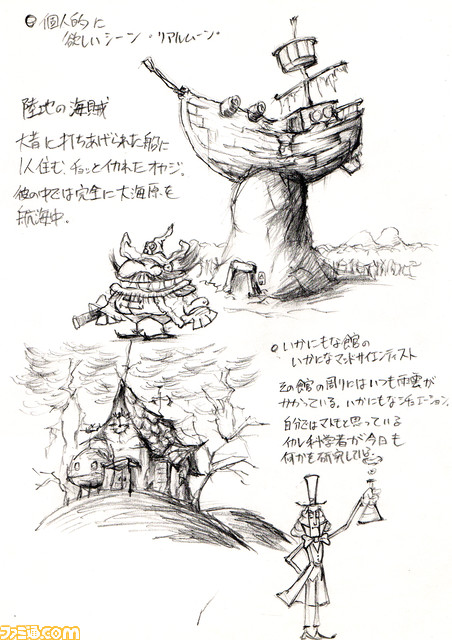 ◎個人的に
欲しいシーン・リアルムーン。
陸地の海賊
大昔に打ちあげられた船に
1人住む、チョッとイカれたオヤジ。
彼の中では完全に大海原を
航海中。
◎いかにもな館の
いかにもなマッドサイエンティスト
その館の周りにはいつも雨雲が
かかっている。いかにもなシチュエーション。
自分ではマトモと思っている
イカレ科学者が今日も
何かを研究している。
ファミ通.com